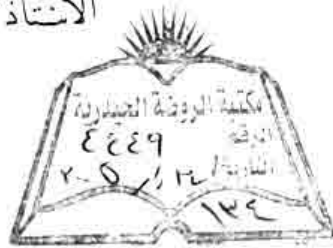 الأستاذ
مكتبة الروضة الحيدرية
الرقم
٤٤٤٩
التاريخ
١٣٤